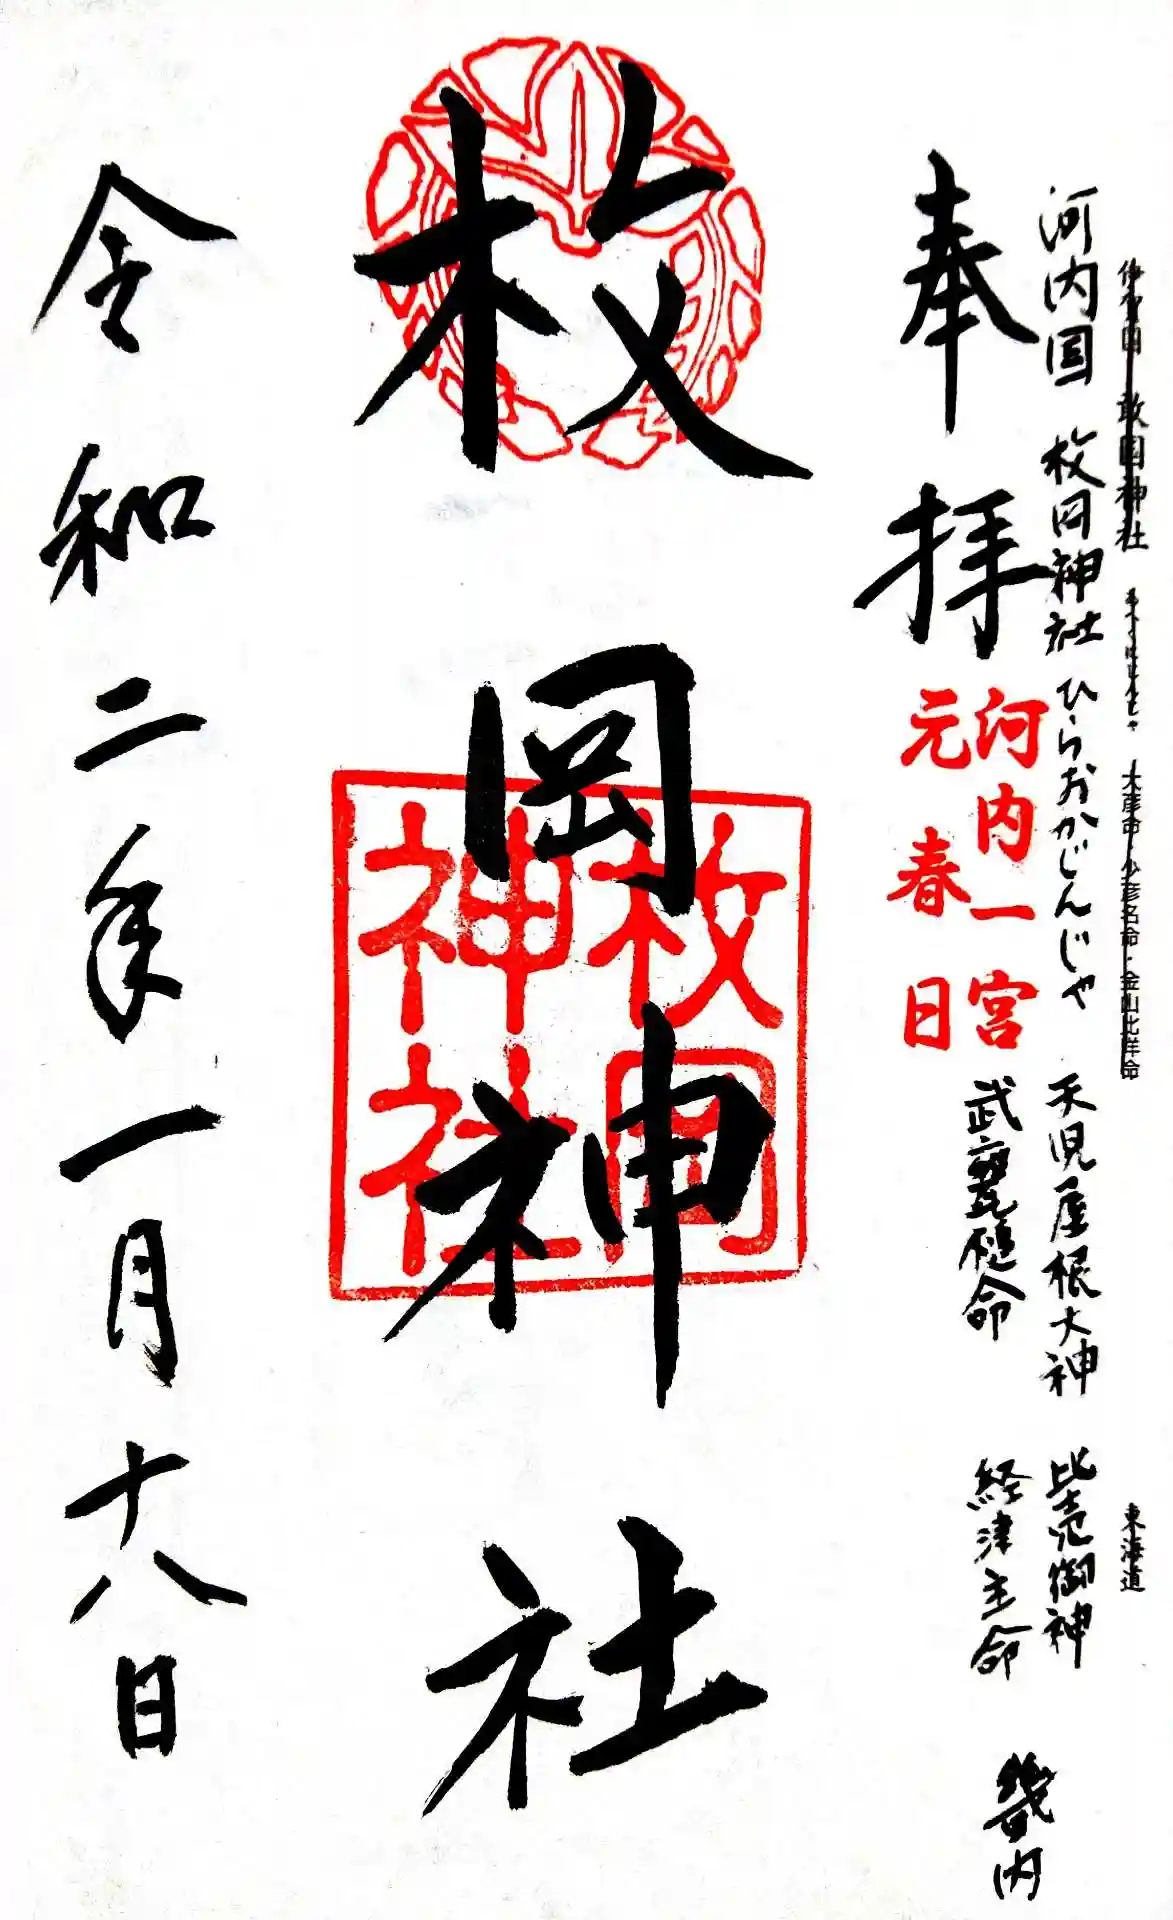 伊賀国 敢国神社 あえくにじんじゃ 大彦命・少彦名命・金山比咩命 東海道
河内国 枚岡神社 ひらおかじんじゃ 天児屋根大神 比売御神
武甕槌命 経津主命
畿内
奉拝
河内一宮
元春日
枚岡神社
枚岡
神社
令和二年一月十八日